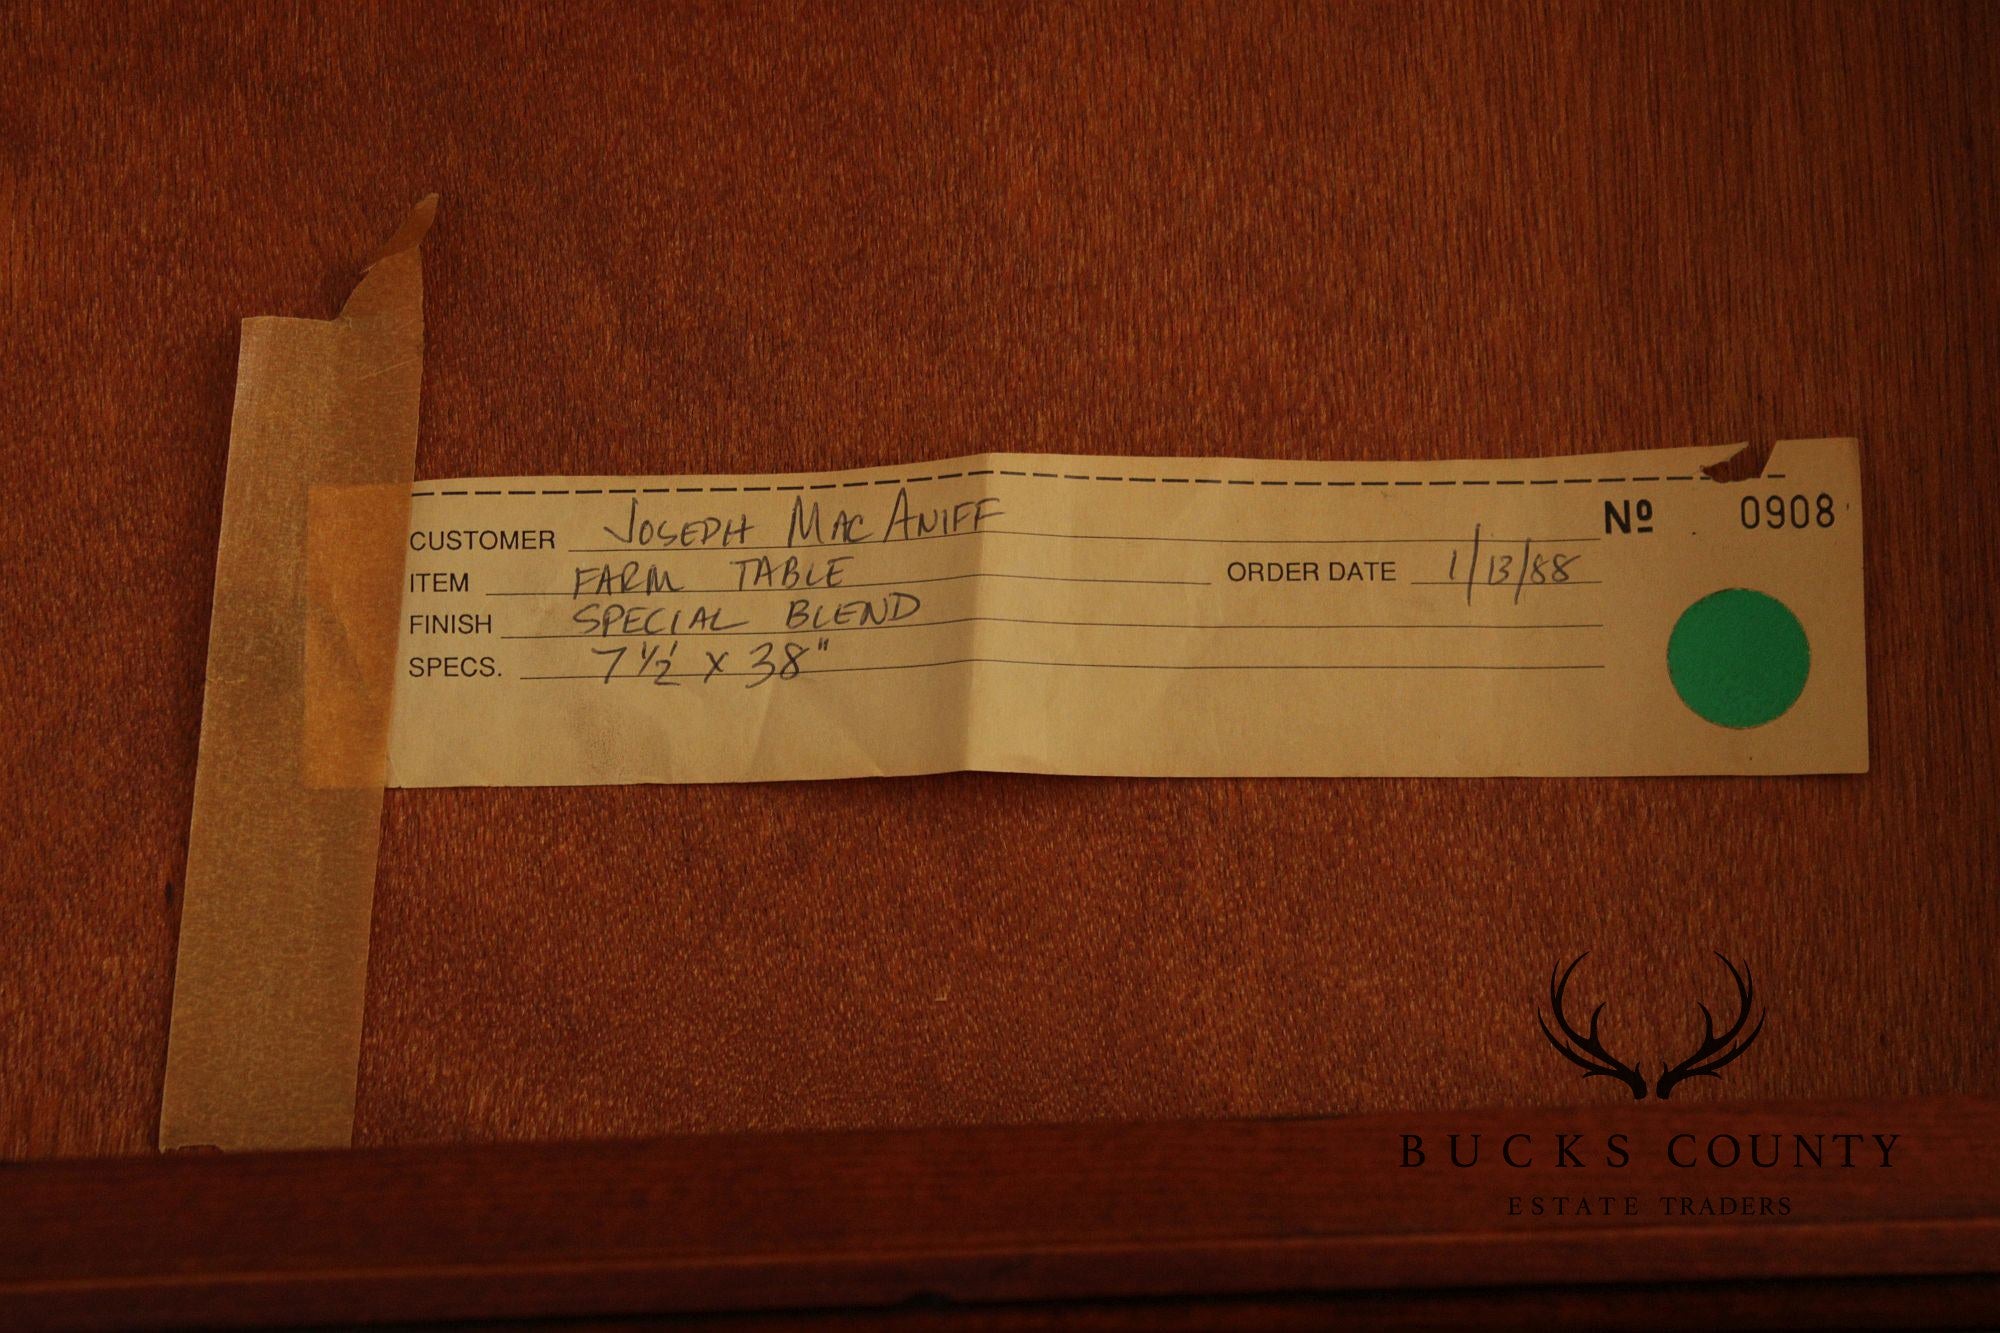 Nº 0908
CUSTOMER JOSEPH MACANIFF
ITEM FARM TABLE ORDER DATE 1/13/88
FINISH SPECIAL BLEND
SPECS. 7 1/2' x 38"
BUCKS COUNTY
ESTATE TRADERS